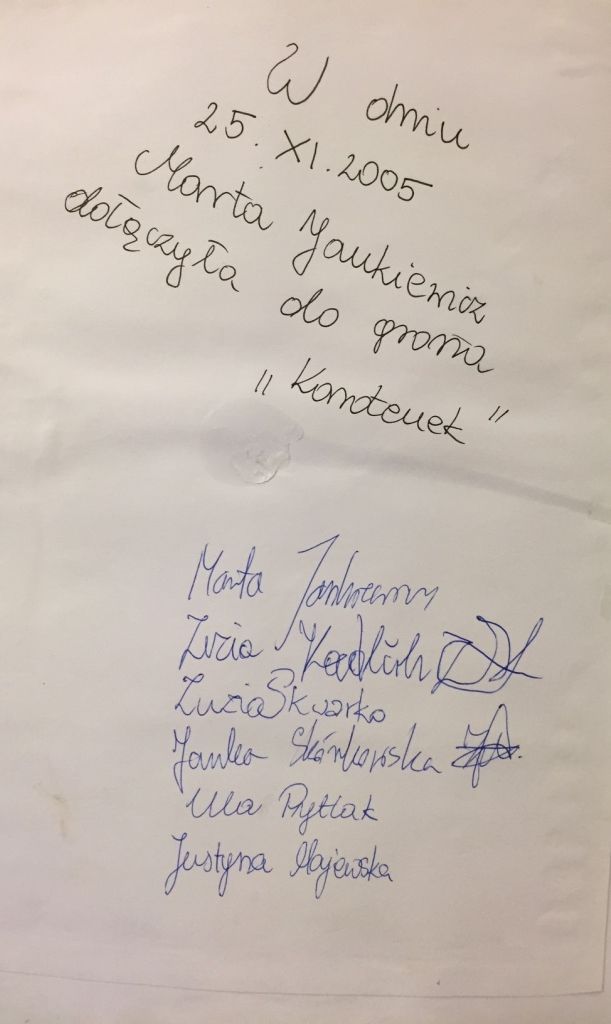 W dniu
25. XI. 2005
Marta Jankiewicz
dołączyła do grona
"Kantenek"
Marta
Zuzia
Zuzia Skwarko
Janka Skórkowska
Ula Pytlak
Justyna Majewska